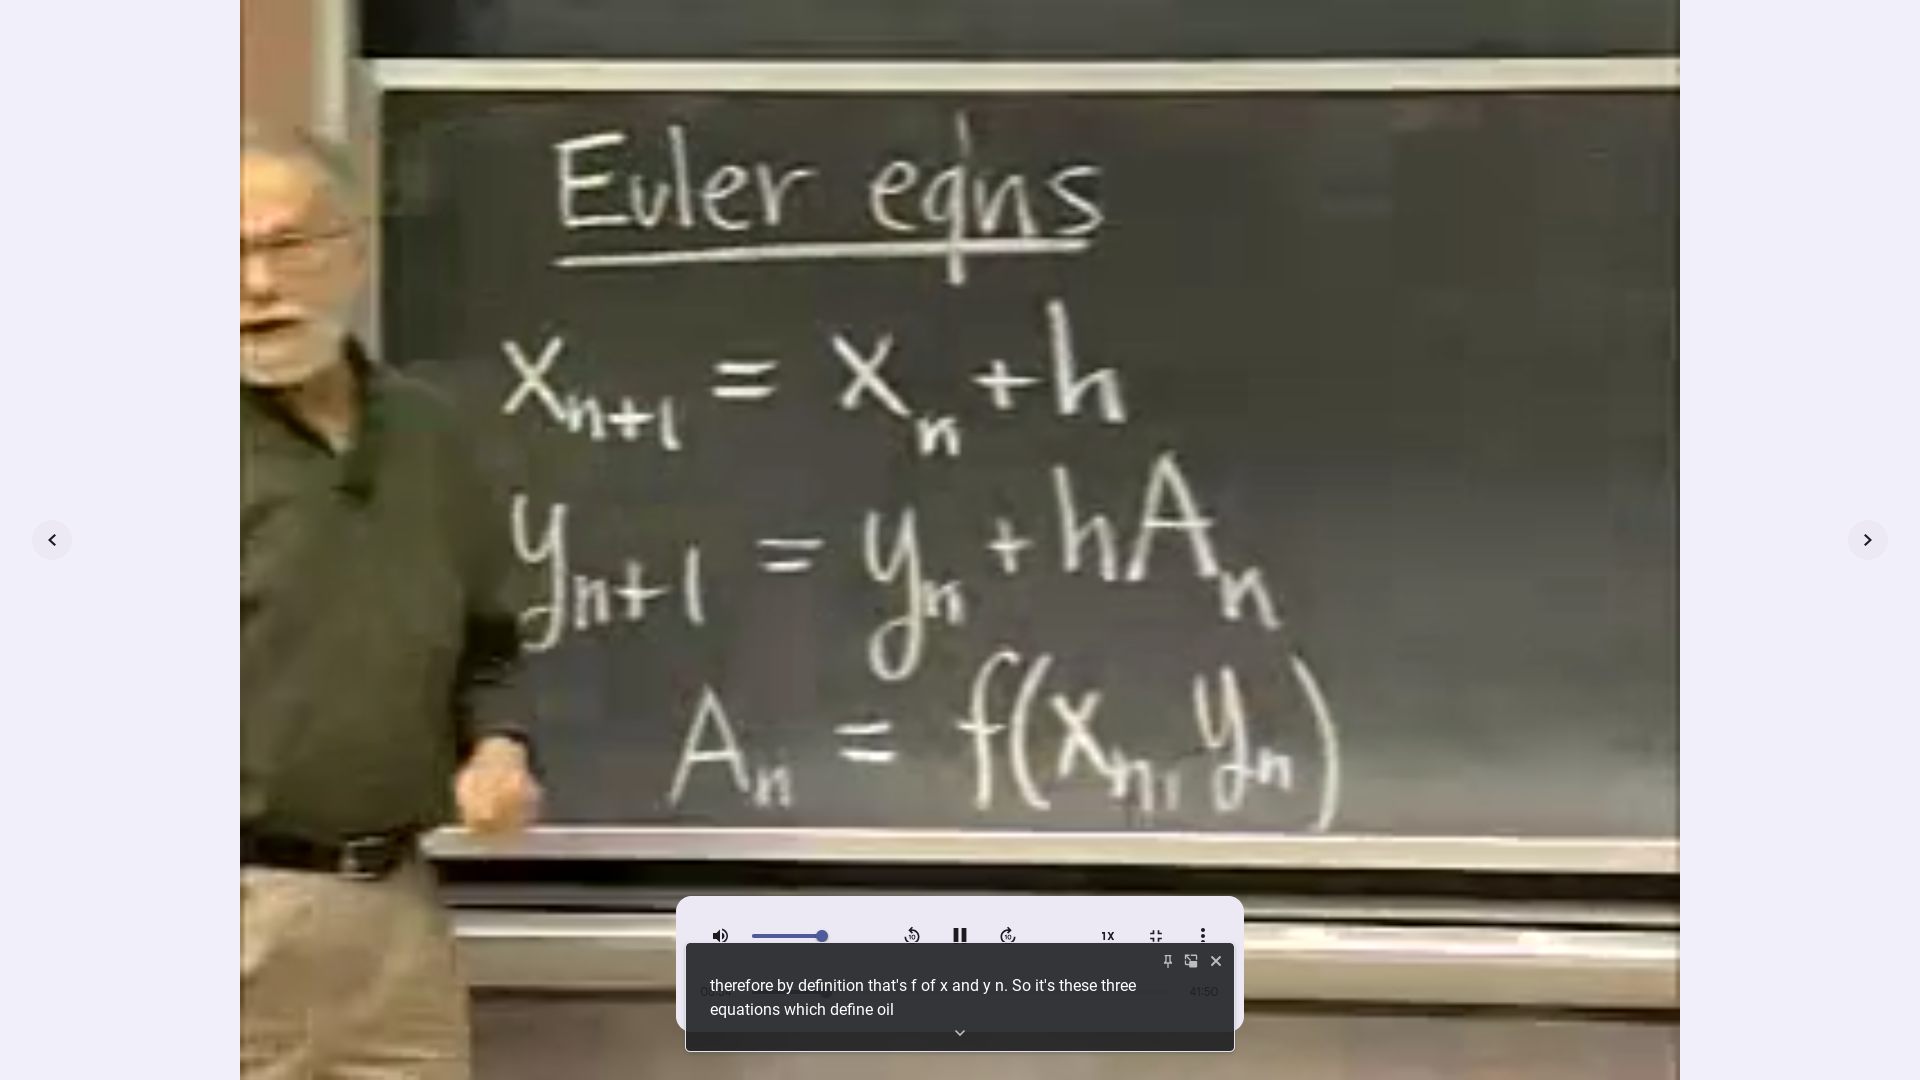 Euler eqns
x_{n+1} = x_n + h
y_{n+1} = y_n + hA_n
A_n = f(x_n, y_n)
10
10
1X
therefore by definition that's f of x and y n. So it's these three
equations which define oil
41:50